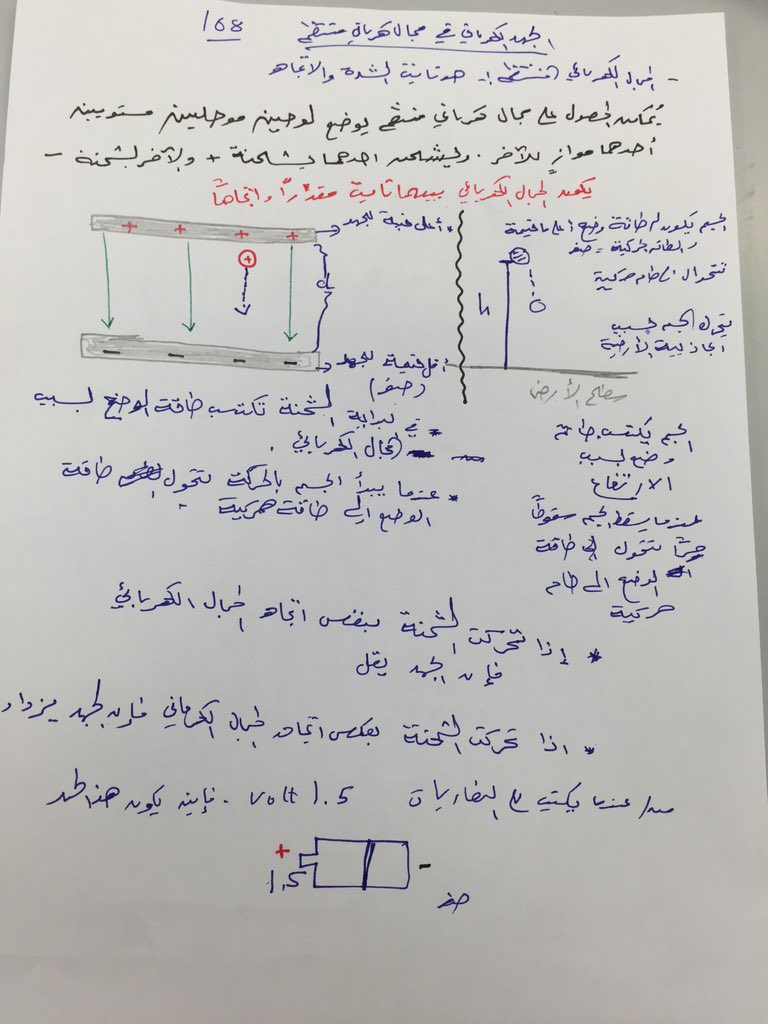 168
الجهد الكهربائي في مجال كهربائي منتظم
- المجال الكهربائي المنتظم :- هو ثابت الشدة والاتجاه
يُمكن الحصول على مجال كهربائي منتظم بوضع لوحين موصلين مستويين
أحدهما موازٍ للآخر . وليشحن احدهما بشحنة + والآخر بشحنة -
يكون المجال الكهربائي بينهما ثابت مقداراً واتجاهاً
+ + + +
+
* أعلى قيمة للجهد
- - - -
أقل قيمة للجهد
(صفر)
الجسم يكون له طاقة وضع أعلى ما قيمة
والطاقة الحركية = صفر
تتحول طاقة حركية
h
يتحرك الجسم بسبب
الجاذبية الأرضية
سطح الأرض
* في بداية الشحنة تكتسب طاقة الوضع بسبب
المجال الكهربائي .
* عندما يبدأ الجسم بالحركة تتحول طاقة
الوضع إلى طاقة حركية
الجسم يكتسب طاقة
وضع بسبب
الارتفاع
عندما يسقط الجسم سقوطاً
حرّاً تتحول طاقة
الوضع الى طاقة
حركية
* إذا تحركت الشحنة بنفس اتجاه المجال الكهربائي
فإن الجهد يقل
* اذا تحركت الشحنة بعكس اتجاه المجال الكهربائي فإن الجهد يزداد
س/ عندما يكتب على البطاريات 1.5 volt . فأين يكون هذا الجهد
+
1.5
-
صفر